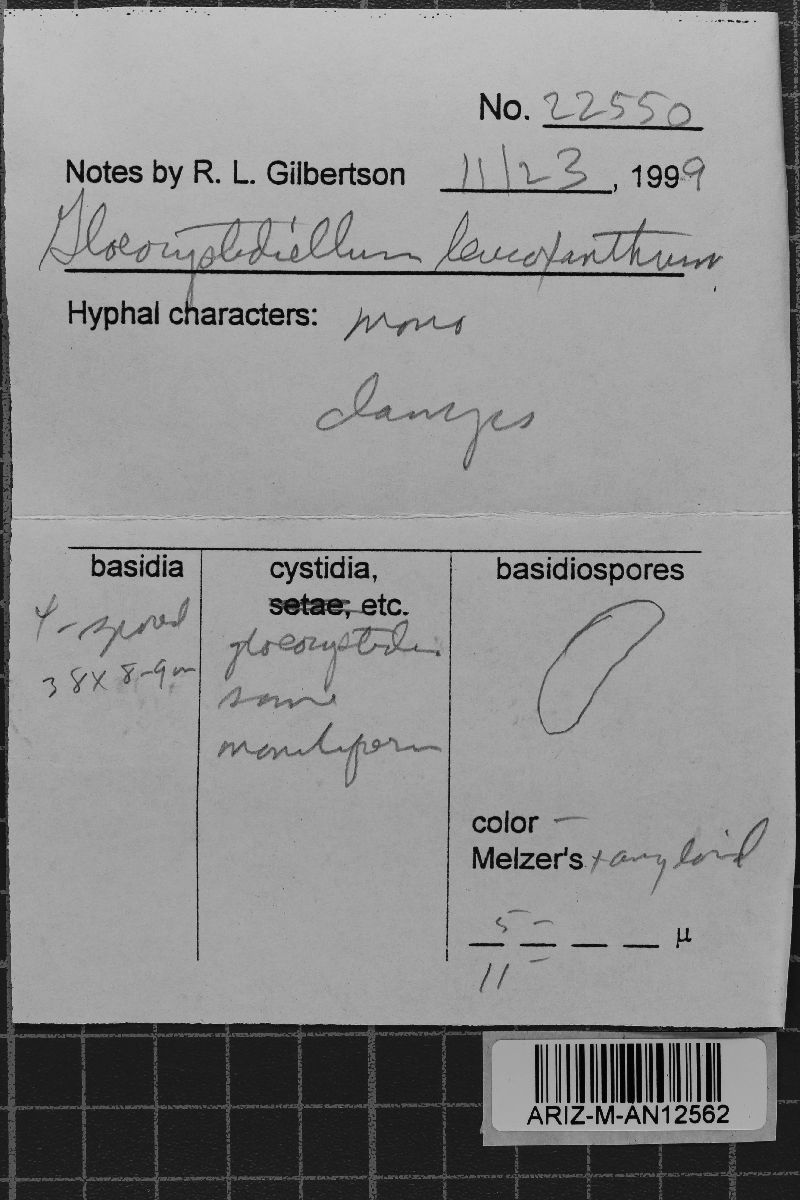 No. 22550
Notes by R. L. Gilbertson 11/23, 1999
Gloeocystidiellum leucoxanthum
Hyphal characters: mono
clamps
basidia
4-spored
38 x 8-9 um
cystidia,
setae, etc.
gloeocystidia
some
moniliform
basidiospores
color —
Melzer's + amyloid
5 –
µ
11 –
ARIZ-M-AN12562